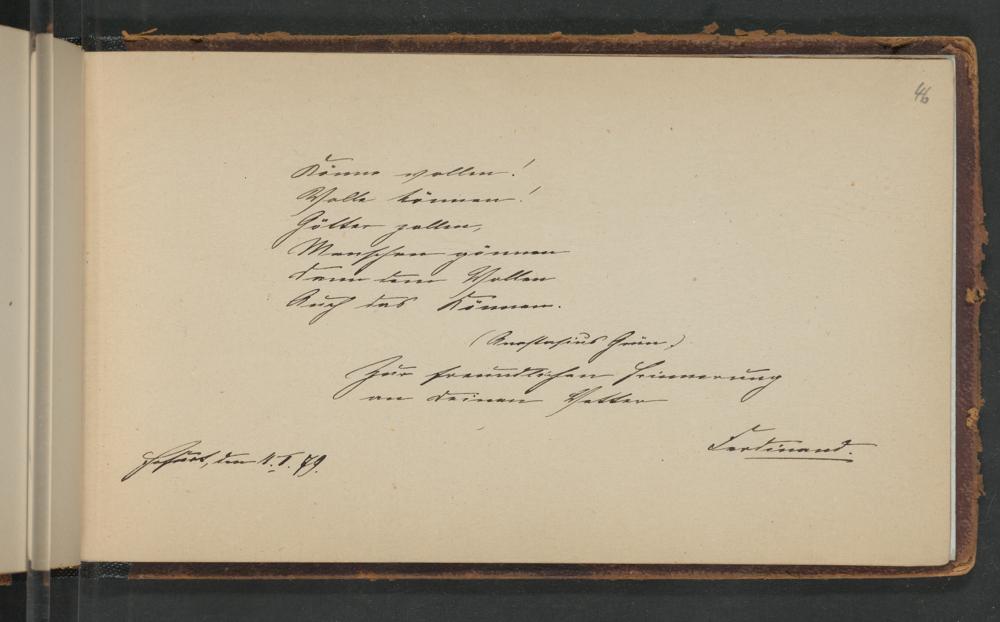 46
Könne wollen!
Wolle können!
Götter zollen,
Menschen gönnen
Dann dem Wollen
Auch das Können.
(Anastasius Grün.)
Zur freundlichen Erinnerung
an Deinen Vetter
Ferdinand.
den 4. I. 79.